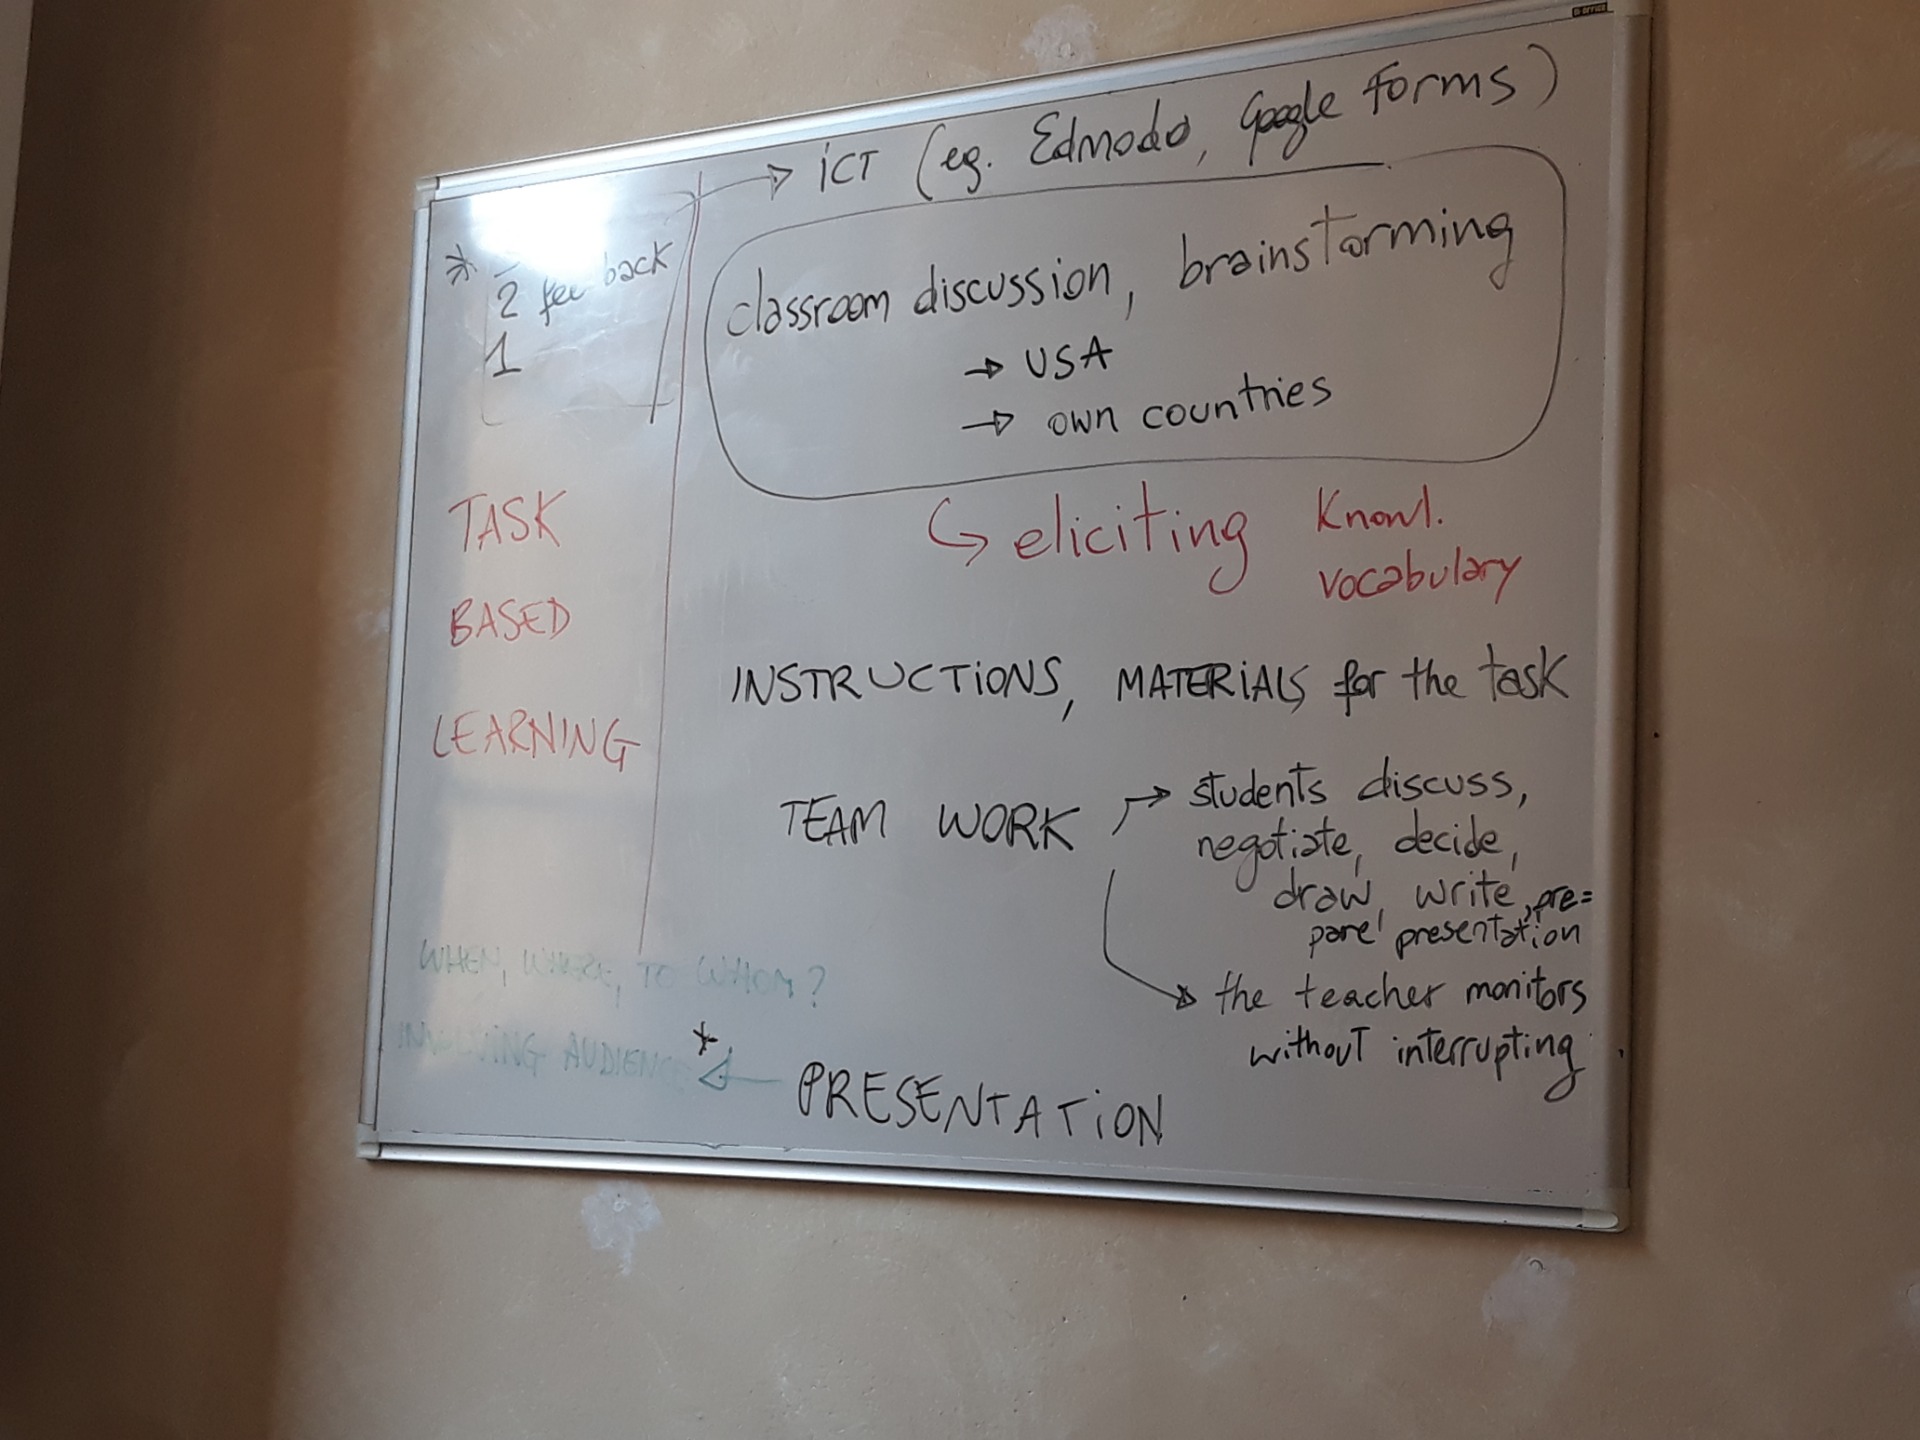 → ICT (eg. Edmodo, Google Forms)
* 2 feedback
1
classroom discussion, brainstorming
→ USA
→ own countries
TASK
BASED
LEARNING
↪ eliciting Knowl.
vocabulary
INSTRUCTIONS, MATERIALS for the task
TEAM WORK → students discuss,
negotiate, decide,
draw, write, pre=
pare presentation
→ the teacher monitors
without interrupting
WHEN, WHERE, TO WHOM?
INVOLVING AUDIENCE
* ← PRESENTATION